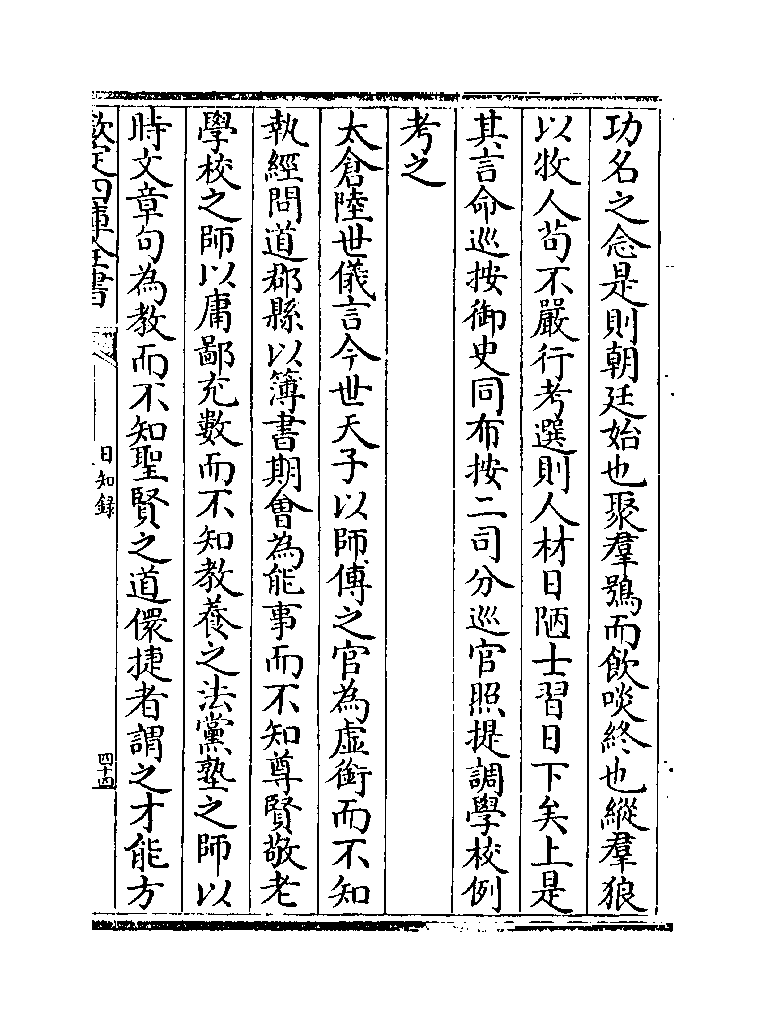 功名之念是則朝廷始也聚羣鴞而飲啖終也縱羣狼
以牧人茍不嚴行考選則人材日陋士習日下矣上是
其言命巡按御史同布按二司分巡官照提調學校例
考之
太倉陸世儀言今世天子以師傅之官為虛銜而不知
執經問道郡縣以簿書期會為能事而不知尊賢敬老
學校之師以庸鄙充數而不知教養之法黨塾之師以
時文章句為教而不知聖賢之道儇捷者謂之才能方
欽定四庫全書
日知錄
四十四